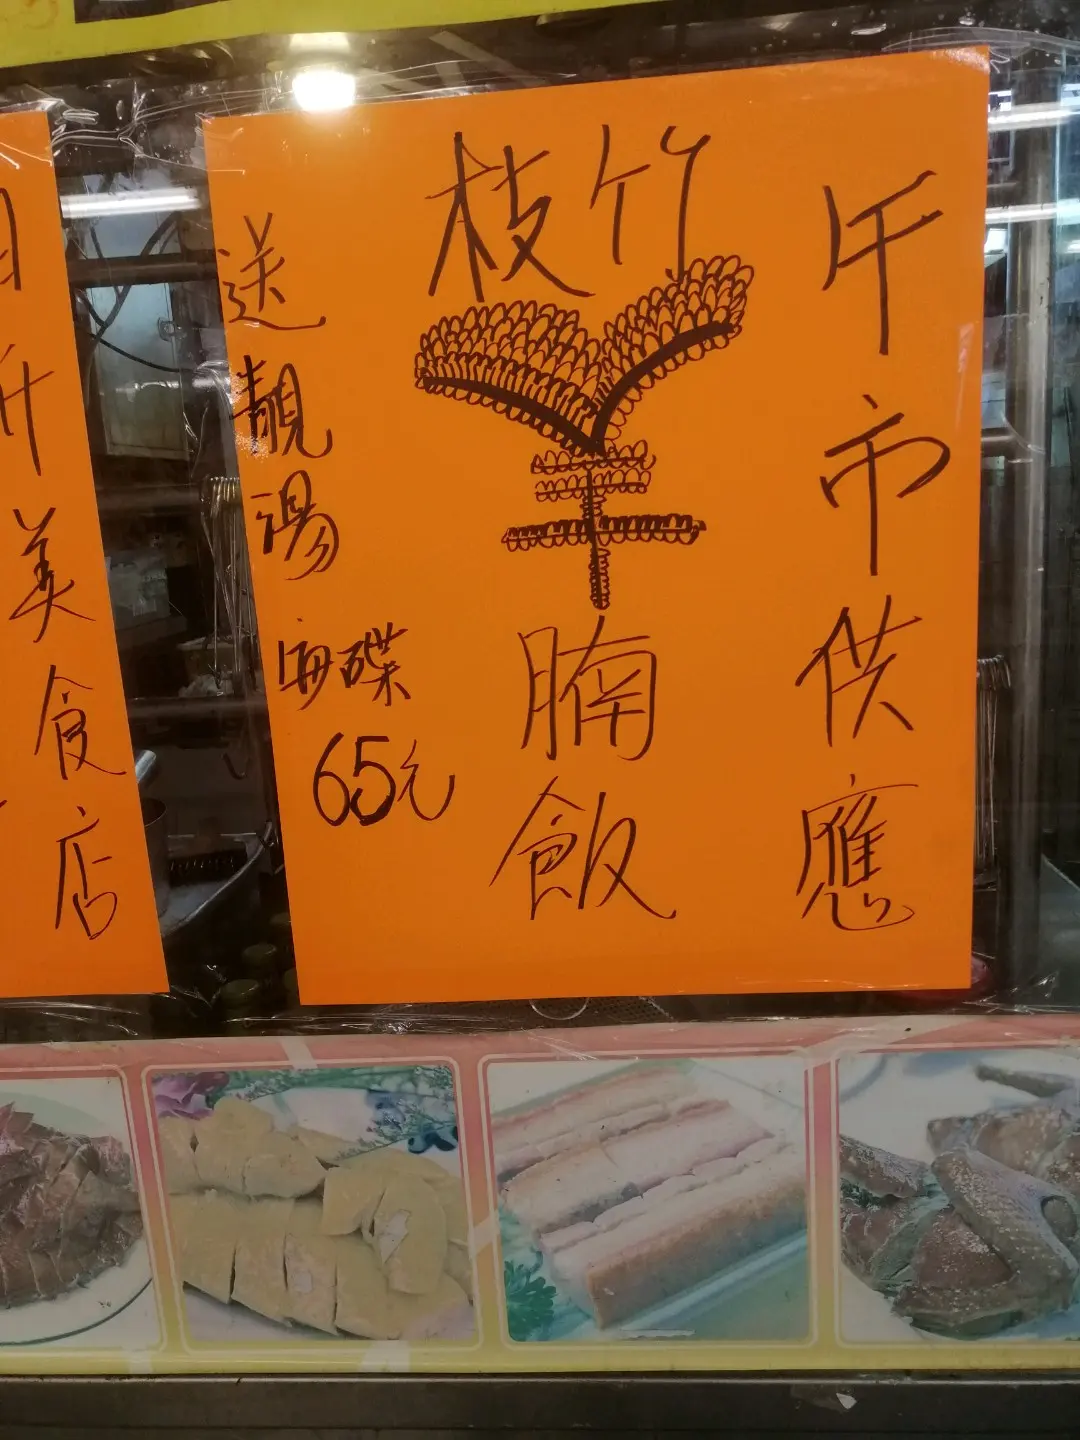 午市供應
枝竹
羊
腩
飯
送靚湯
每碟
65元
美食店